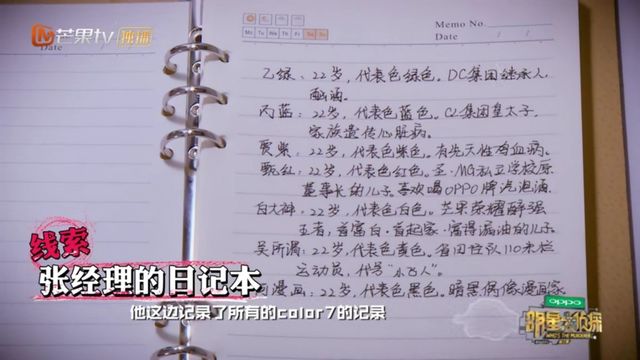 芒果tv 独播
Date
Memo No.
Mo Tu We Th Fr Sa Su
Date / /
乙绿：22岁，代表色绿色。DC集团继承人，
丙蓝：22岁，代表色蓝色。CL集团皇太子，
家族遗传心脏病。
贾紫：22岁，代表色紫色。有先天性
甄红：22岁，代表色红色。圣·MG私立学校原
董事长的儿子，喜欢喝OPPO牌汽泡酒。
白大神：22岁，代表色白色。芒果荣耀醉强
王者，首富白·首起家·富得漏油的儿子
吴所谓：22岁，代表色黄色。省田径队110米栏
运动员，代号“小飞人”。
漫画：22岁，代表色黑色。暗黑偶像漫画家
线索
张经理的日记本
他这边记录了所有的color7的记录
oppo
明星大侦探
WHO'S THE MURDERER